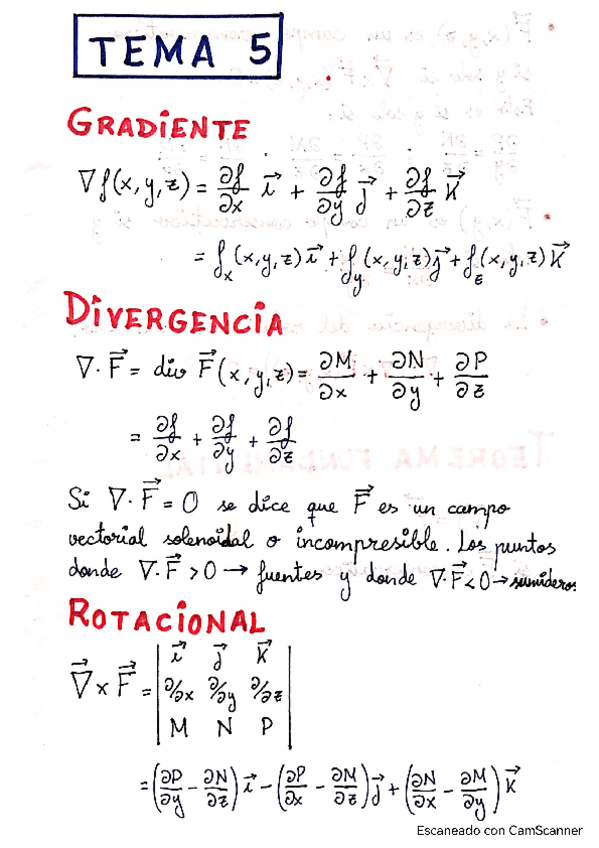 TEMA 5
GRADIENTE
∇f(x,y,z) = ∂f/∂x i⃗ + ∂f/∂y j⃗ + ∂f/∂z k⃗
= f_x(x,y,z) i⃗ + f_y(x,y,z) j⃗ + f_z(x,y,z) k⃗
DIVERGENCIA
∇·F⃗ = div F⃗(x,y,z) = ∂M/∂x + ∂N/∂y + ∂P/∂z
= ∂f/∂x + ∂f/∂y + ∂f/∂z
Si ∇·F⃗ = 0 se dice que F⃗ es un campo
vectorial solenoidal o incompresible. Los puntos
donde ∇·F⃗ > 0 → fuentes y donde ∇·F⃗ < 0 → sumideros.
ROTACIONAL
∇⃗ × F⃗ = | i⃗ j⃗ k⃗ |
| ∂/∂x ∂/∂y ∂/∂z |
| M N P |
= (∂P/∂y - ∂N/∂z) i⃗ - (∂P/∂x - ∂M/∂z) j⃗ + (∂N/∂x - ∂M/∂y) k⃗
Escaneado con CamScanner